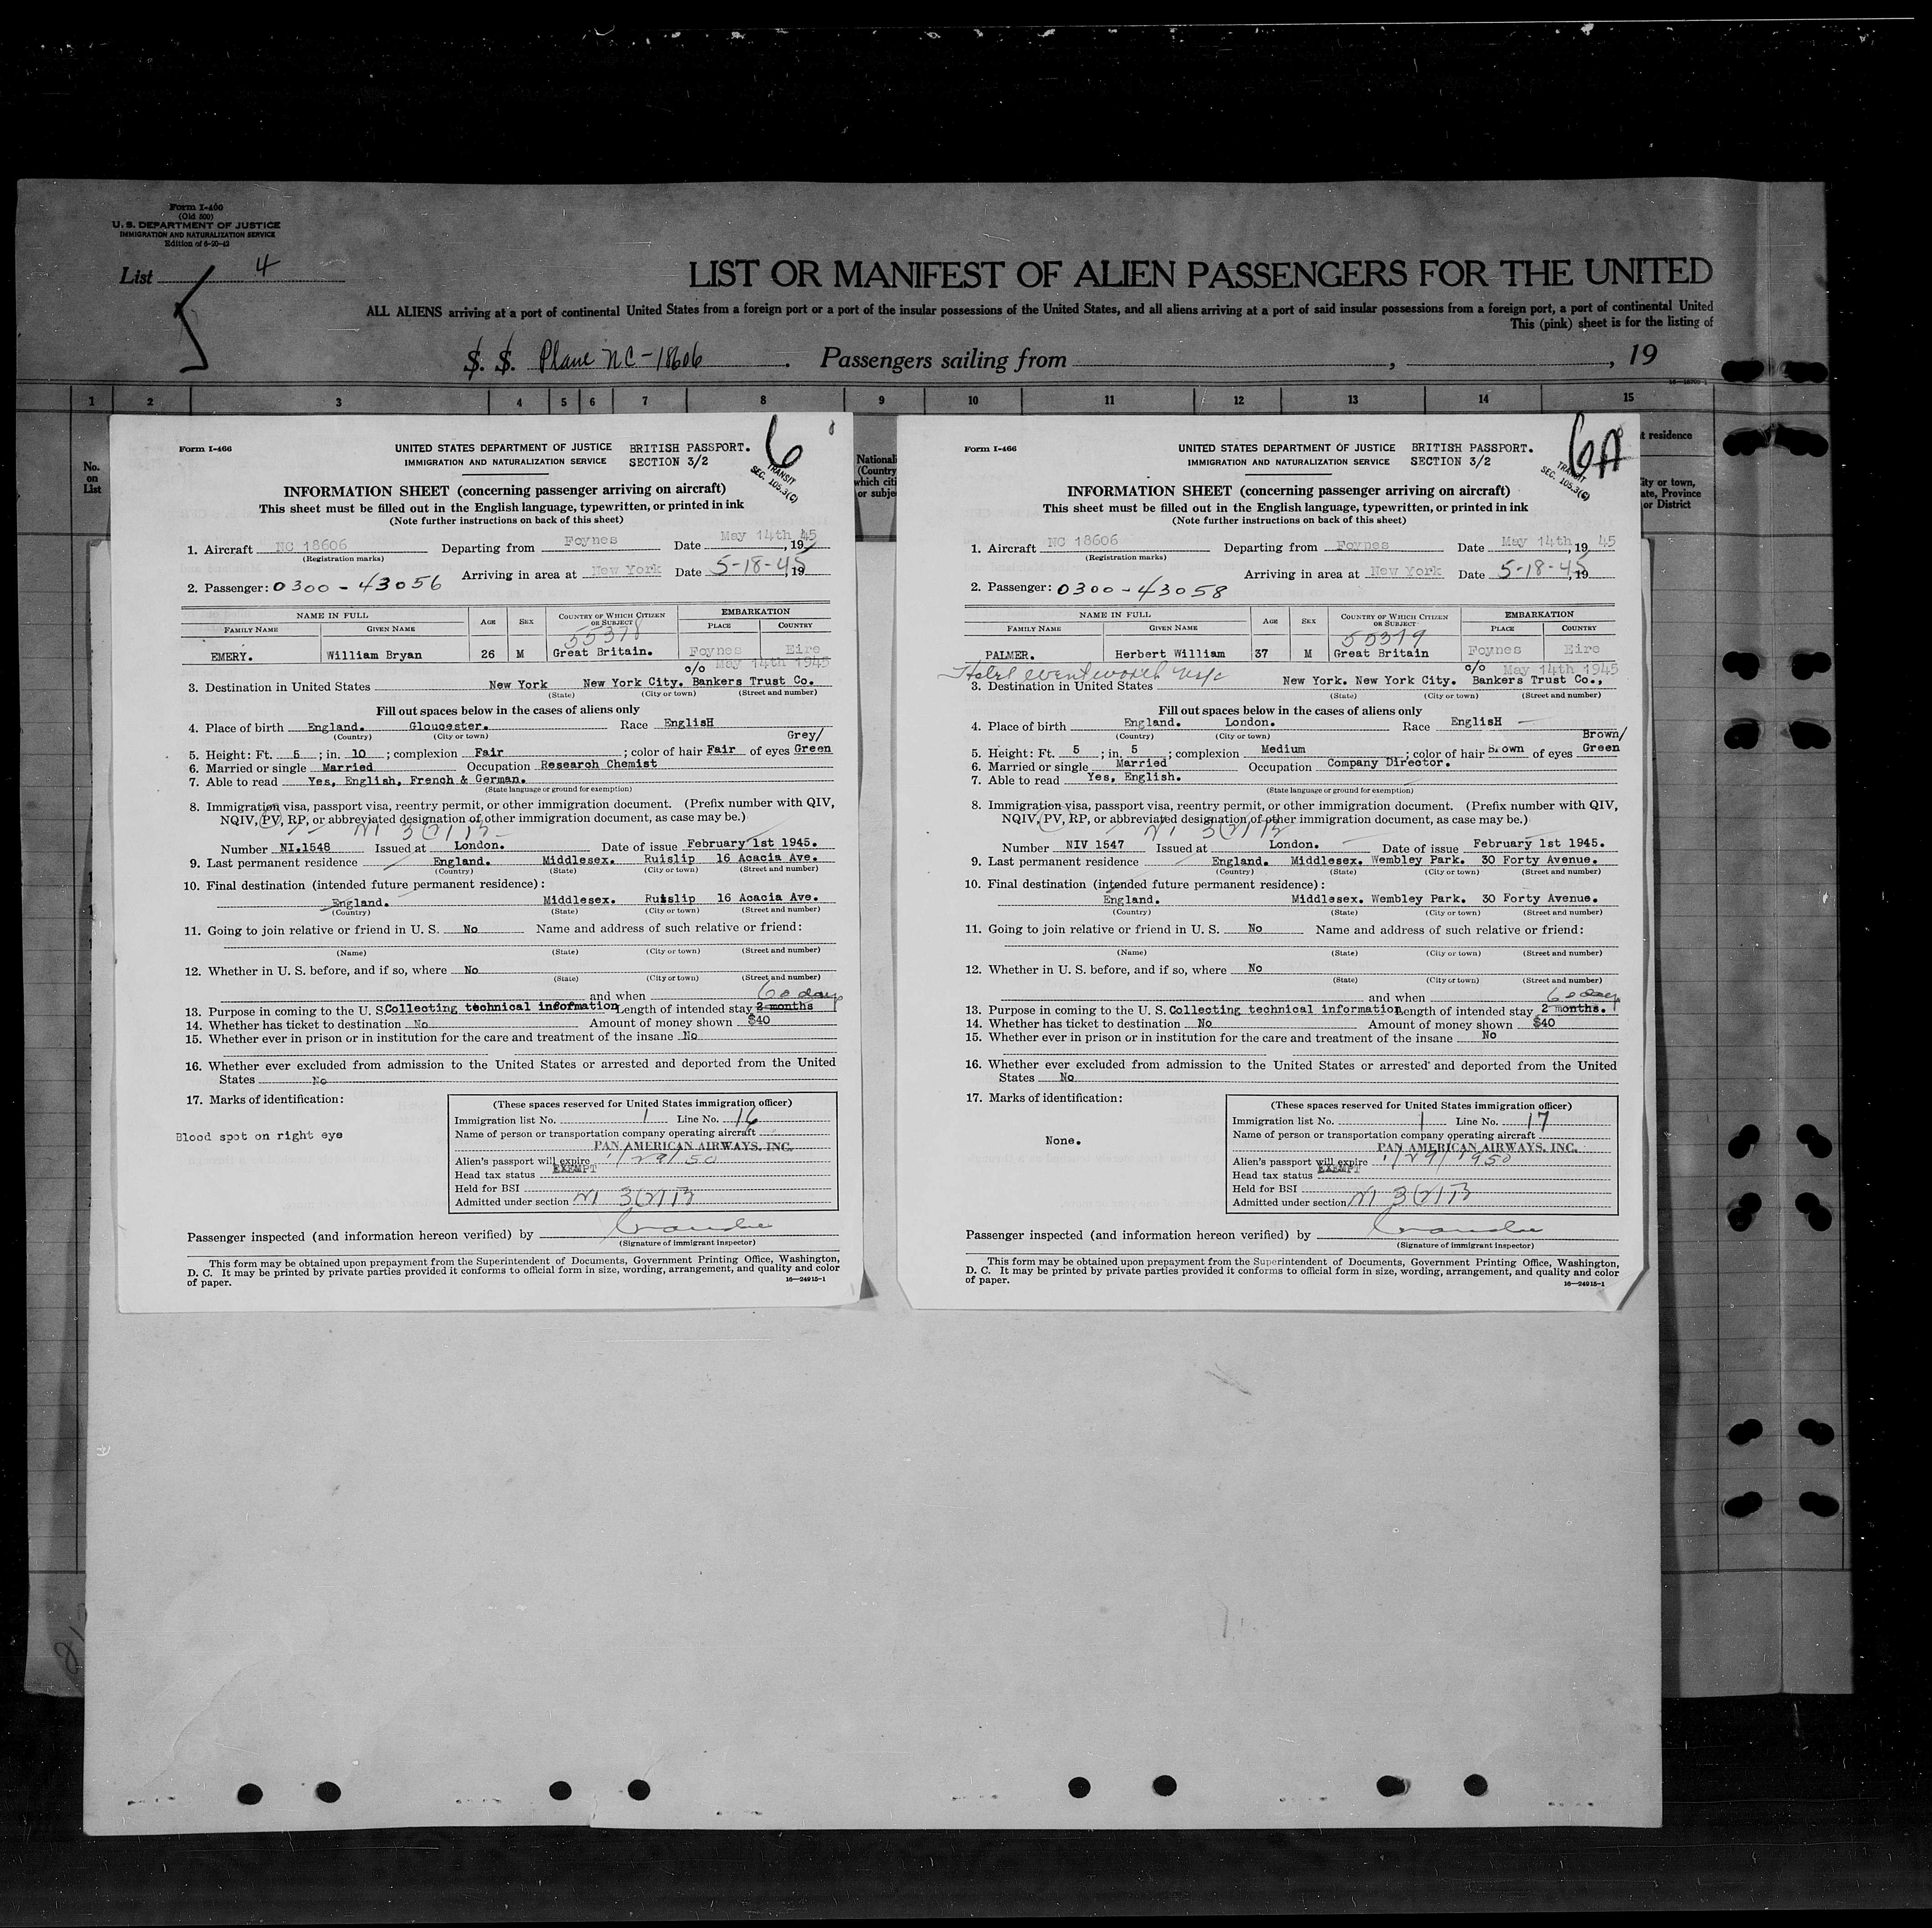 Form I-466
(Old 500)
U. S. DEPARTMENT OF JUSTICE
IMMIGRATION AND NATURALIZATION SERVICE
Edition of 6-20-42
List 4
LIST OR MANIFEST OF ALIEN PASSENGERS FOR THE UNITED
ALL ALIENS arriving at a port of continental United States from a foreign port or a port of the insular possessions of the United States, and all aliens arriving at a port of said insular possessions from a foreign port, a port of continental United
This (pink) sheet is for the listing of
S. S. Plane NC-18606. Passengers sailing from , , 19
1 2 3 4 5 6 7 8 9 10 11 12 13 14 15
No.
on
List
Nationali
(Country
which citi
or subje
t residence
ity or town,
ate, Province
or District
Form I-466
UNITED STATES DEPARTMENT OF JUSTICE BRITISH PASSPORT. 6
IMMIGRATION AND NATURALIZATION SERVICE SECTION 3/2
TRANSIT
SEC. 105.3(C)
INFORMATION SHEET (concerning passenger arriving on aircraft)
This sheet must be filled out in the English language, typewritten, or printed in ink
(Note further instructions on back of this sheet)
1. Aircraft NC 18606 Departing from Foynes Date May 14th, 1945
(Registration marks)
Arriving in area at New York Date 5-18-45, 19
2. Passenger: 0300-43056
NAME IN FULL AGE SEX COUNTRY OF WHICH CITIZEN OR SUBJECT EMBARKATION
FAMILY NAME GIVEN NAME PLACE COUNTRY
55378
EMERY. William Bryan 26 M Great Britain. Foynes Eire
c/o May 14th 1945
3. Destination in United States New York New York City. Bankers Trust Co.
(State) (City or town) (Street and number)
Fill out spaces below in the cases of aliens only
4. Place of birth England. Gloucester. Race EnglisH
(Country) (City or town)
Grey/
5. Height: Ft. 5; in. 10; complexion Fair; color of hair Fair of eyes Green
6. Married or single Married Occupation Research Chemist
7. Able to read Yes, English, French & German.
(State language or ground for exemption)
8. Immigration visa, passport visa, reentry permit, or other immigration document. (Prefix number with QIV,
NQIV, PV, RP, or abbreviated designation of other immigration document, as case may be.)
Number NI.1548 Issued at London. Date of issue February 1st 1945.
9. Last permanent residence England. Middlesex. Ruislip 16 Acacia Ave.
(Country) (State) (City or town) (Street and number)
10. Final destination (intended future permanent residence):
England. Middlesex. Ruislip 16 Acacia Ave.
(Country) (State) (City or town) (Street and number)
11. Going to join relative or friend in U. S. No Name and address of such relative or friend:
(Name) (State) (City or town) (Street and number)
12. Whether in U. S. before, and if so, where No
(State) (City or town) (Street and number)
and when
60 days
13. Purpose in coming to the U. S. Collecting technical information Length of intended stay 2 months
14. Whether has ticket to destination No Amount of money shown $40
15. Whether ever in prison or in institution for the care and treatment of the insane No
16. Whether ever excluded from admission to the United States or arrested and deported from the United
States No
17. Marks of identification:
Blood spot on right eye
(These spaces reserved for United States immigration officer)
Immigration list No. 1 Line No. 16
Name of person or transportation company operating aircraft
PAN AMERICAN AIRWAYS, INC.
Alien's passport will expire 1/29/50
Head tax status EXEMPT
Held for BSI
Admitted under section
Passenger inspected (and information hereon verified) by
(Signature of immigrant inspector)
This form may be obtained upon prepayment from the Superintendent of Documents, Government Printing Office, Washington,
D. C. It may be printed by private parties provided it conforms to official form in size, wording, arrangement, and quality and color
of paper. 16—24915-1
Form I-466
UNITED STATES DEPARTMENT OF JUSTICE BRITISH PASSPORT. 6A
IMMIGRATION AND NATURALIZATION SERVICE SECTION 3/2
TRANSIT
SEC. 105.3(C)
INFORMATION SHEET (concerning passenger arriving on aircraft)
This sheet must be filled out in the English language, typewritten, or printed in ink
(Note further instructions on back of this sheet)
1. Aircraft NC 18606 Departing from Foynes Date May 14th, 1945
(Registration marks)
Arriving in area at New York Date 5-18-45, 19
2. Passenger: 0300-43058
NAME IN FULL AGE SEX COUNTRY OF WHICH CITIZEN OR SUBJECT EMBARKATION
FAMILY NAME GIVEN NAME PLACE COUNTRY
55379
PALMER. Herbert William 37 M Great Britain Foynes Eire
Hotel Wentworth NYC c/o May 14th 1945
3. Destination in United States New York. New York City. Bankers Trust Co.,
(State) (City or town) (Street and number)
Fill out spaces below in the cases of aliens only
4. Place of birth England. London. Race EnglisH
(Country) (City or town)
Brown/
5. Height: Ft. 5; in. 5; complexion Medium; color of hair Brown of eyes Green
6. Married or single Married Occupation Company Director.
7. Able to read Yes, English.
(State language or ground for exemption)
8. Immigration visa, passport visa, reentry permit, or other immigration document. (Prefix number with QIV,
NQIV, PV, RP, or abbreviated designation of other immigration document, as case may be.)
Number NIV 1547 Issued at London. Date of issue February 1st 1945.
9. Last permanent residence England. Middlesex. Wembley Park. 30 Forty Avenue.
(Country) (State) (City or town) (Street and number)
10. Final destination (intended future permanent residence):
England. Middlesex. Wembley Park. 30 Forty Avenue.
(Country) (State) (City or town) (Street and number)
11. Going to join relative or friend in U. S. No Name and address of such relative or friend:
(Name) (State) (City or town) (Street and number)
12. Whether in U. S. before, and if so, where No
(State) (City or town) (Street and number)
and when
60 days
13. Purpose in coming to the U. S. Collecting technical information Length of intended stay 2 months.
14. Whether has ticket to destination No Amount of money shown $40
15. Whether ever in prison or in institution for the care and treatment of the insane No
16. Whether ever excluded from admission to the United States or arrested and deported from the United
States No
17. Marks of identification:
None.
(These spaces reserved for United States immigration officer)
Immigration list No. 1 Line No. 17
Name of person or transportation company operating aircraft
PAN AMERICAN AIRWAYS, INC.
Alien's passport will expire 1/29/1950
Head tax status EXEMPT
Held for BSI
Admitted under section
Passenger inspected (and information hereon verified) by
(Signature of immigrant inspector)
This form may be obtained upon prepayment from the Superintendent of Documents, Government Printing Office, Washington,
D. C. It may be printed by private parties provided it conforms to official form in size, wording, arrangement, and quality and color
of paper. 16—24915-1